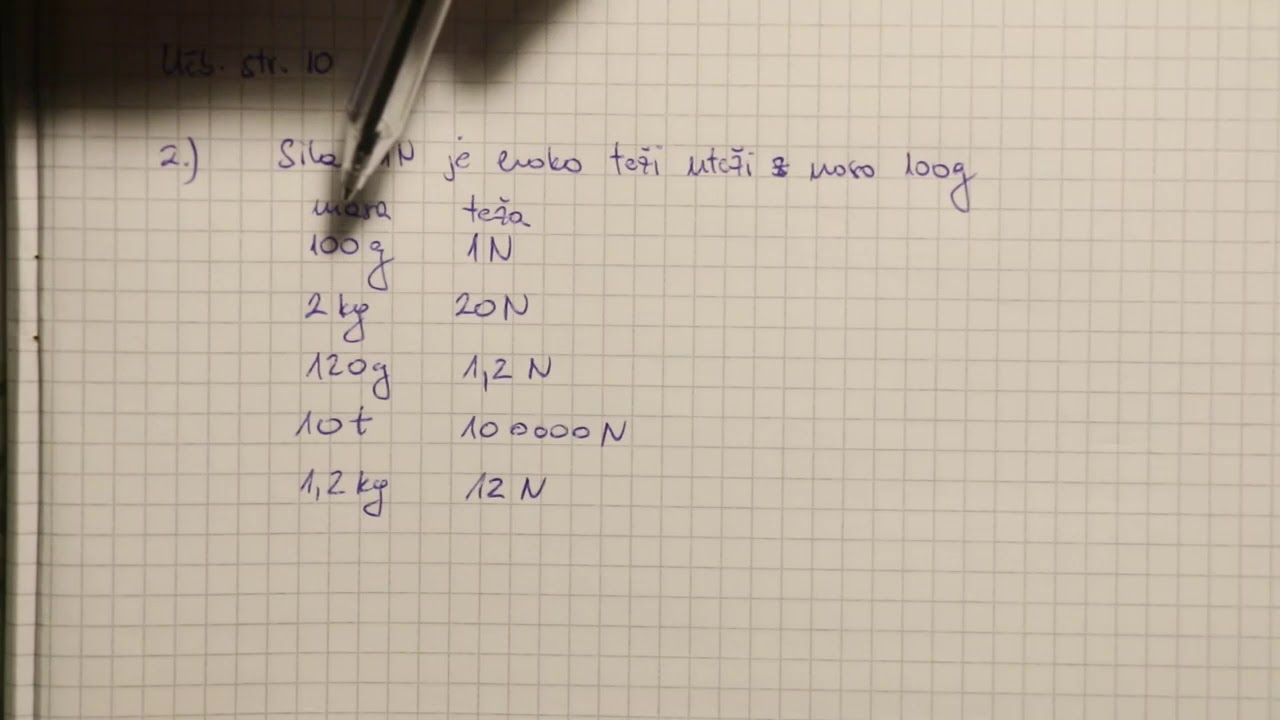 Učb. str. 10
2.) Sila 1N je enako teži uteži z maso 100g
masa teža
100g 1N
2 kg 20N
120g 1,2 N
10t 100000N
1,2 kg 12 N